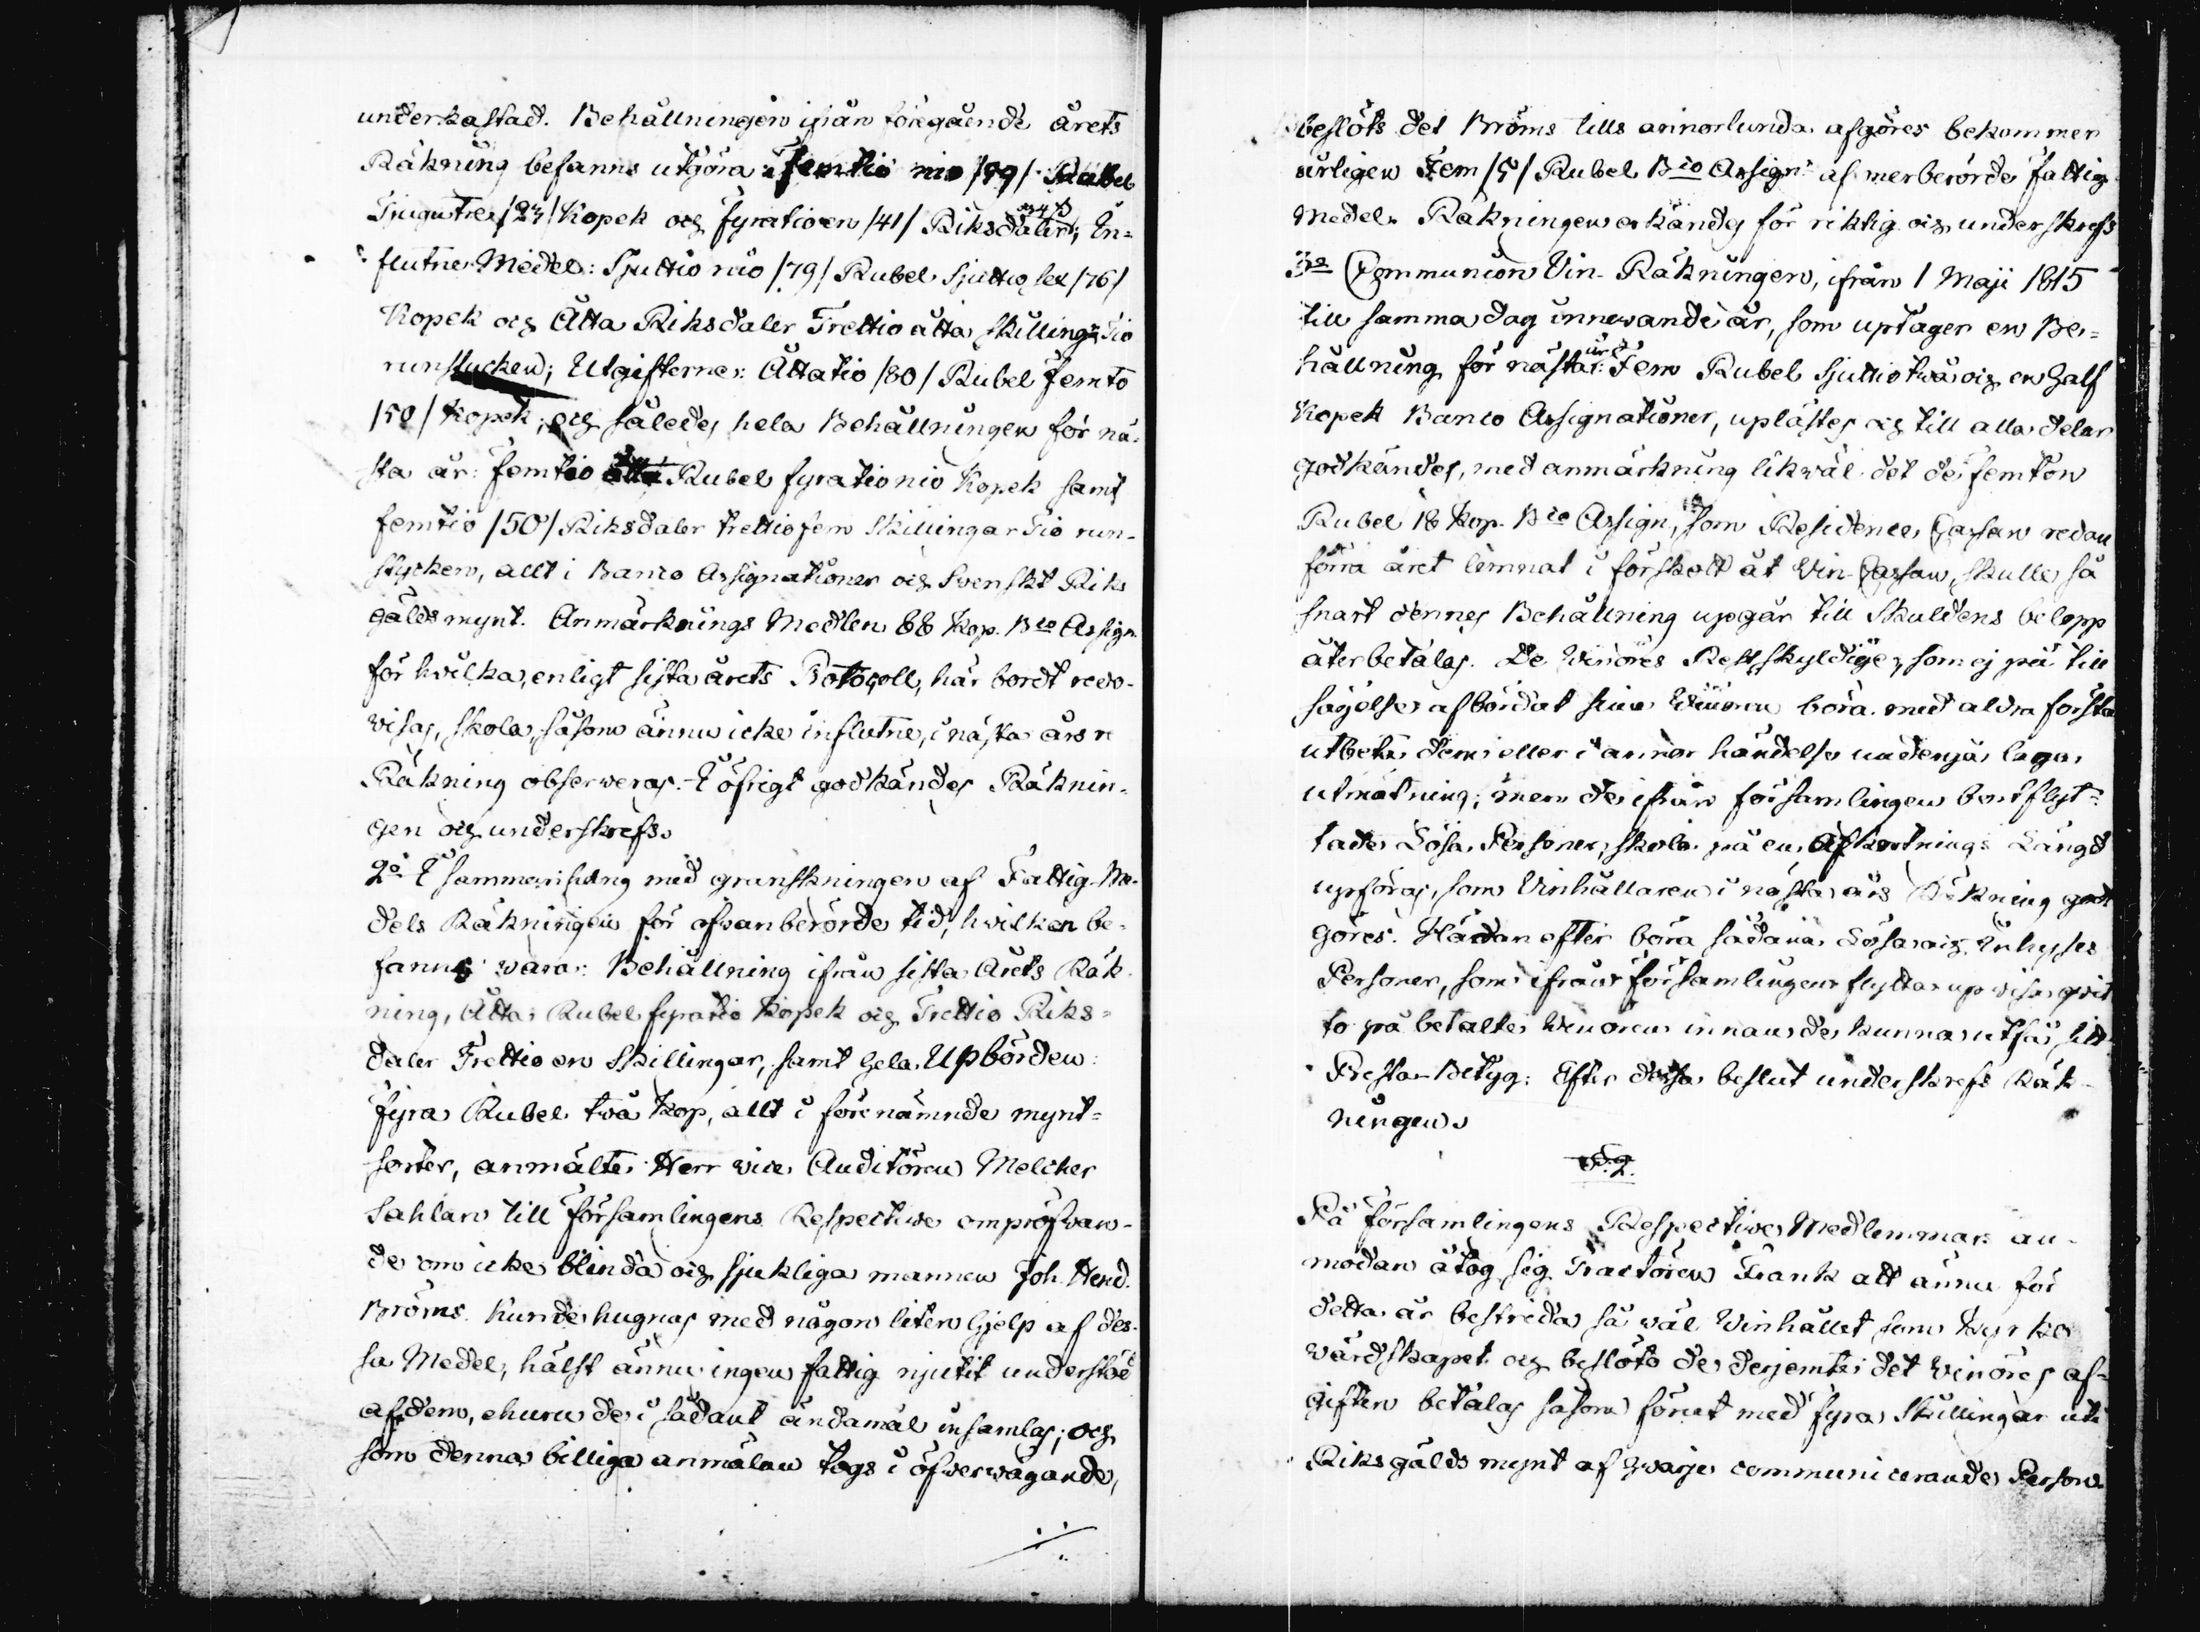 underkastad. Behållningen ifrån föregående årets
Räkning befanns utgöra: femtio nio /59/ Rubel
Tjugutre /23/ Kopek och fyratioen /41/ Riksdaler; In-
flutne Medel: Sjuttio nio /79/ Rubel Sjuttio sex /76/
Kopek och Åtta Riksdaler Trettio åtta skillingar Tio
runstycken; Utgifterne: Åttatio /80/ Rubel femtio
/50/ Kopek; och således hela Behållningen för nä-
sta år: femtio åtta Rubel fyrationio Kopek samt
femtio /50/ Riksdaler trettiofem Skillingar Tio run-
stycken, allt i Banco Assignationer och Svenskt Riks
gälds mynt. Anmärknings Medlen 66 Kop. Bco Assign.
för hvilka, enligt sista årets Protocoll, här bordt redo-
visas, skola, såsom ännu icke influtne, i nästa års
Räkning observeras. I öfrigt godkändes Räknin-
gen och underskrefs.
2o I sammanhang med granskningen af Fattig-Me-
dels Räkningen för ofvanberörde tid, hvilken be-
fanns vara: Behållning ifrån sista Årets Räk-
ning, Åtta Rubel fyratio Kopek och Trettio Riks-
daler Trettio en Skillingar, samt hela Upbörden:
fyra Rubel två Kop, allt i förenämnde mynt-
sorter, anmälte Herr vice Auditören Melcher
Sahlan till församlingens Respective ompröfvan-
de om icke blinda och sjukliga mannen Joh. Hend.
Bröms kunde hugnas med någon liten hjelp af des-
sa Medel, hälst ännu ingen fattig njutit understöd
af dem, ehuru de i sådant ändamål insamlas; och
som denna billiga anmälan togs i öfvervägande,
beslöts det Bröms tills annorlunda afgöres bekommer
årligen Fem /5/ Rubel Bco Assignr af merberörde Fattig
Medel. Räkningen erkändes för riktig och underskrefs
3o Communion Vin-Räkningen, ifrån 1 Maji 1815
till samma dag innevarande år, som uptager en Be-
hållning för nästa år: Fem Rubel Sjuttiotvå och en half
Kopek Banco Assignationer, uplästes och till alla delar
godkändes, med anmärkning likväl det de femton
Rubel 18 Kop. Bco Assign, som Residence Cassan redan
förra året lemnat i förskott åt Vin-Cassan, skulle så
snart dennes Behållning upgår till Skuldens belopp
återbetalas. De Vinöres Restskyldige, som ej på till
sägelse afbördat sina Vinören böra med aldra första
utbetala dem eller i annor händelse undergå laga
utmätning; men de ifrån församlingen bortflyt-
tade Lösa Personer, skola på en Afkortnings Längd
upföras, som Vinhållaren i nästa års Räkning godt
göres. Hädan efter böra sådana Lösa och Inhyses
Personer, som ifrån församlingen flytta upvisa qvit
to på betalte Vinören innan de kunna utfå sitt
Presta-Betyg. Efter dessa beslut underskrefs Räk-
ningen.
§. 2.
På församlingens Respective Medlemmars an-
modan åtog sig Tracteuren Frank att ännu för
detta år bestrida så väl Vinhållet som Kyrko
värdskapet och beslöto de derjemte det Vinöres af-
giften betalas såsom förut med fyra Skillingar uti
Riksgälds mynt af hvarje communicerande Person.